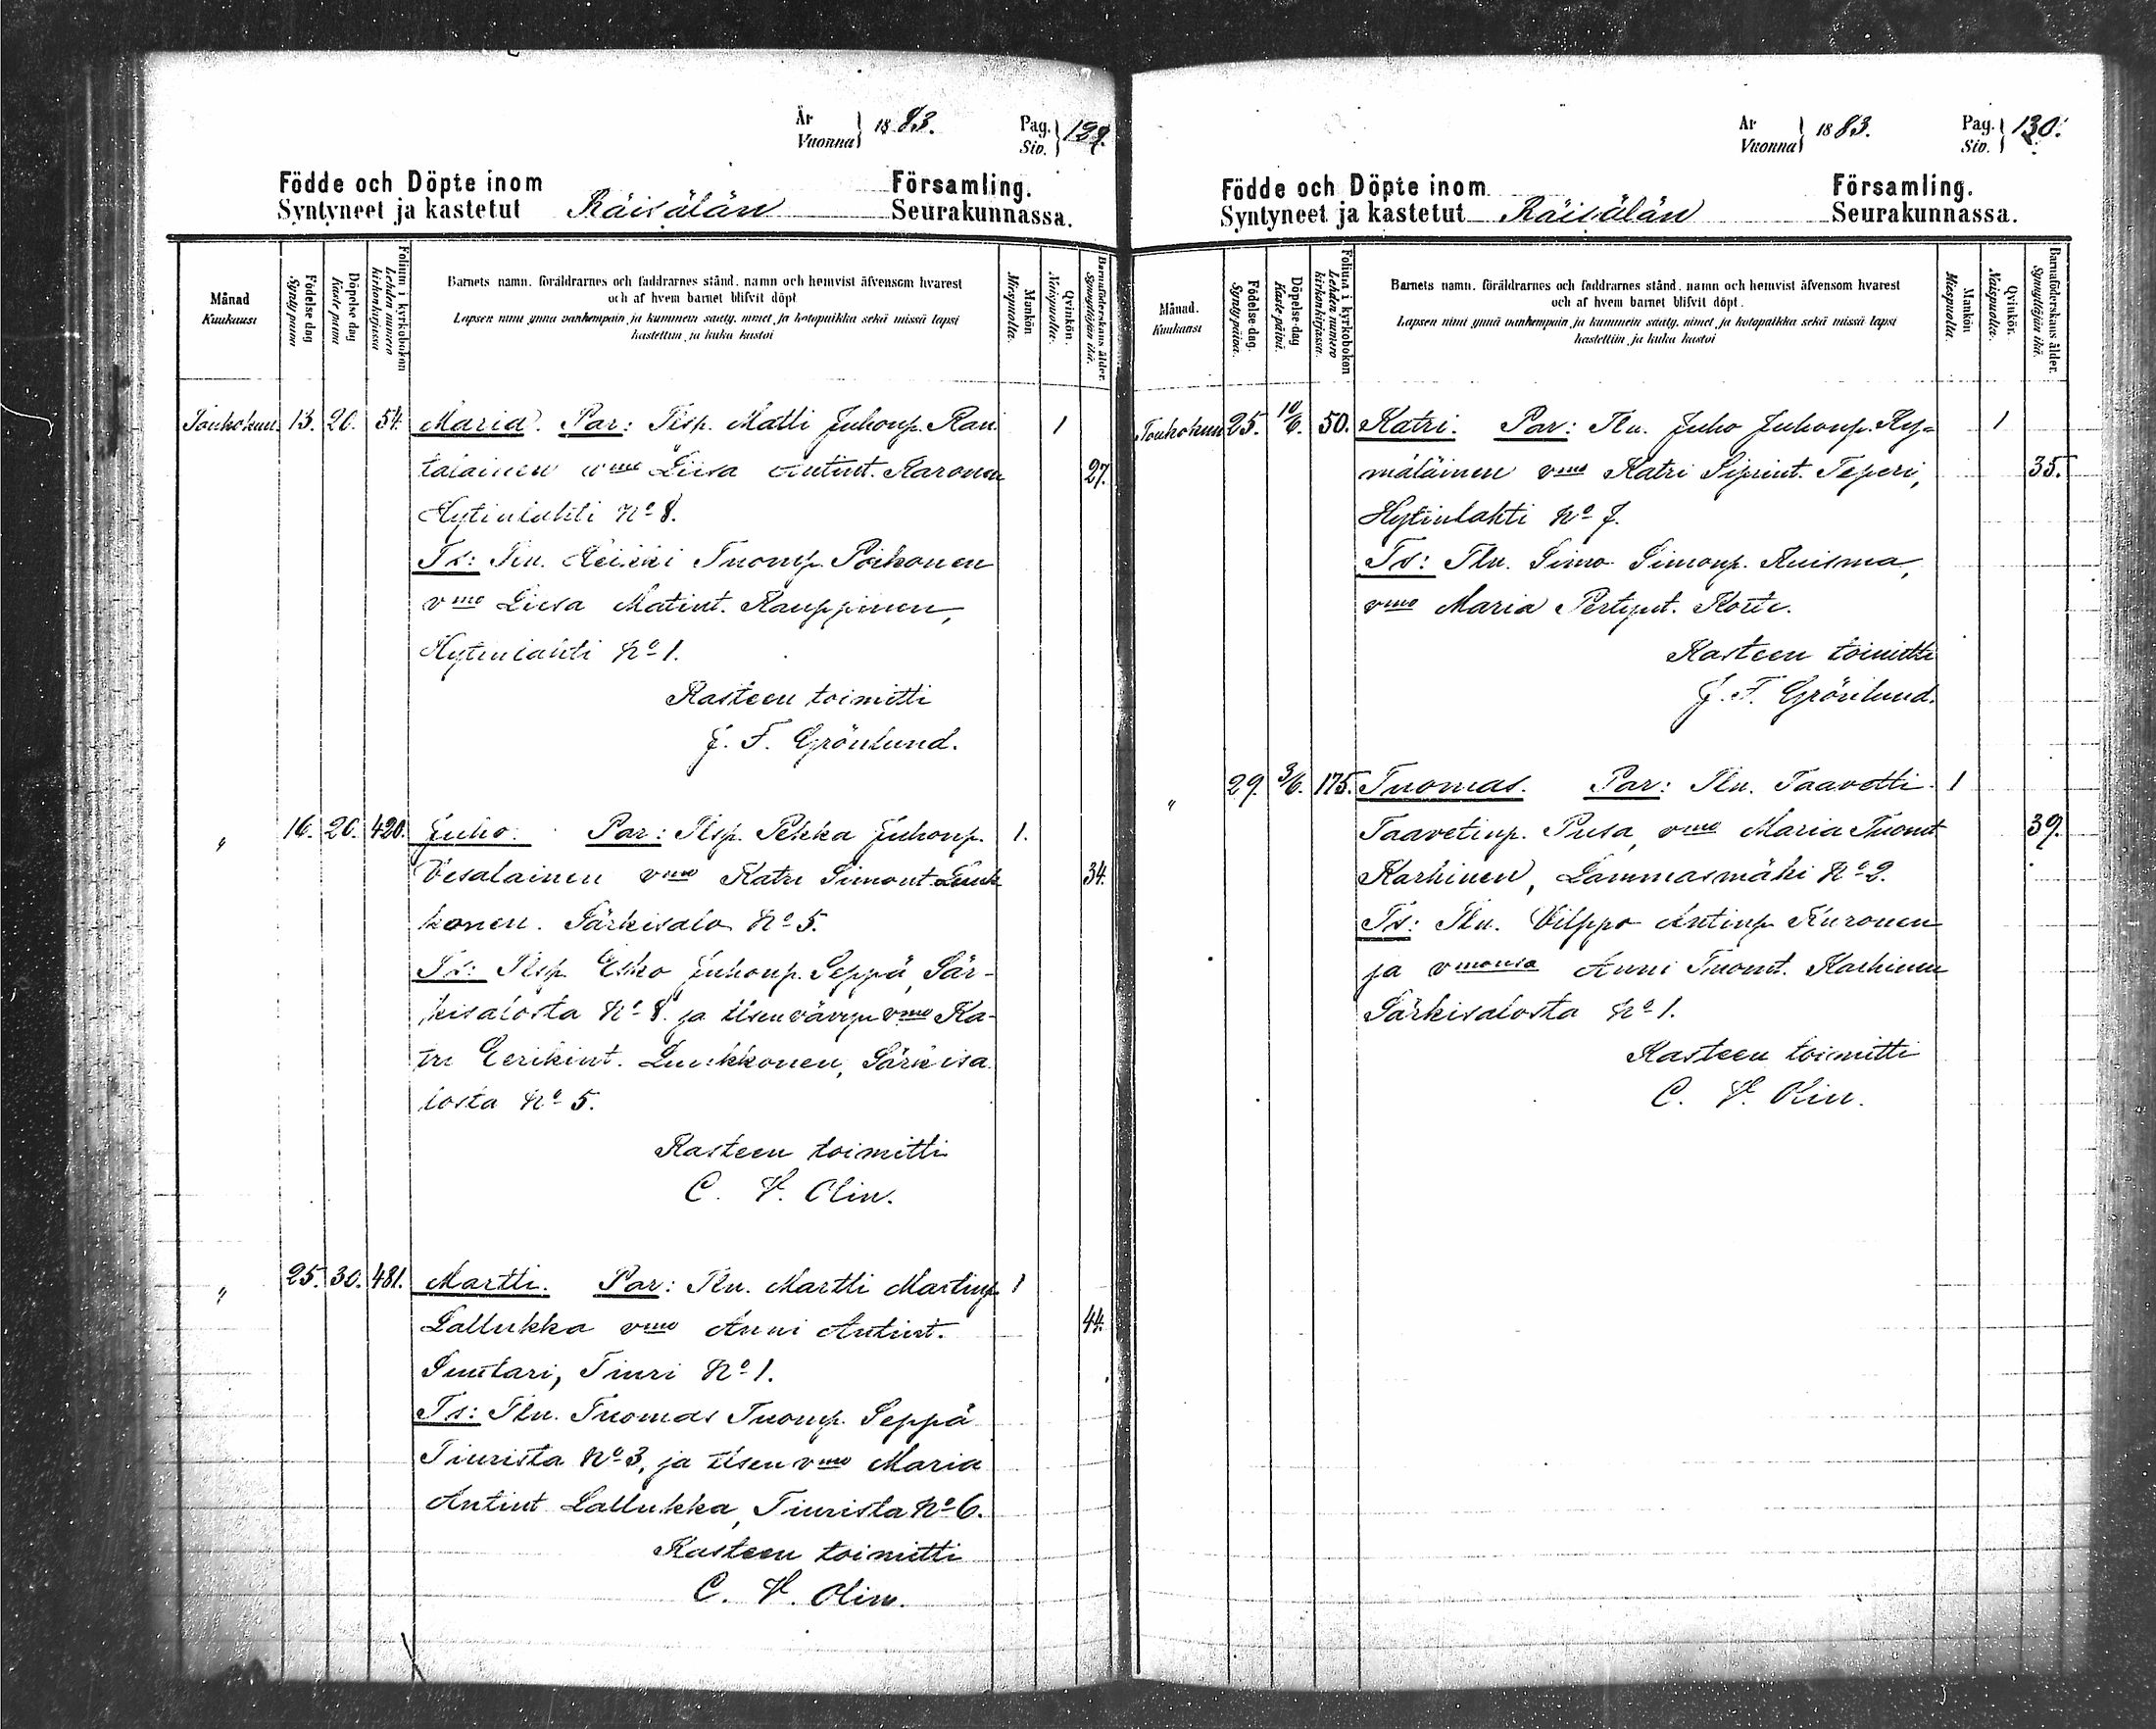 År
Vuonna } 1883.
Pag.
Siv. } 129.
Födde och Döpte inom
Syntyneet ja kastetut Räisälän
Församling.
Seurakunnassa.
Månad
Kuukausi
Födelse dag
Synty päivä
Döpelse dag
Kaste päivä
Folium i kyrkoboken
Lehden numero kirkonkirjassa
Barnets namn, föräldrarnes och faddrarnes stånd, namn och hemvist äfvensom hvarest
och af hvem barnet blifvit döpt
Lapsen nimi ynnä vanhempain ja kummein sääty, nimet ja kotopaikka sekä missä lapsi
kastettiin ja kuka kastoi
Mankön
Miespuolia.
Qvinkön.
Naispuolia.
Barnaföderskans ålder.
Synnyttäjän ikä.
Toukokuu 13. 20. 54. Maria. Par: Tlsp. Matti Juhonp. Rau 1
talainen vmo Liisa Antint. Karonen 27.
Hytinlahti No 8.
Ts: Tln. Heikki Tuomp. Poikonen
vmo Liisa Matint. Kauppinen,
Hytinlahti No 1.
Kasteen toimitti
J. F. Grönlund.
" 16. 20. 420. Juho. Par: Tlsp. Pekka Juhonp. 1.
Vesalainen vmo Katri Simont. Luuk 34.
konen. Särkisalo No 5.
Ts: Tlsp. Esko Juhonp. Seppä, Sär-
kisalosta No 8. ja tlsen vävyn vmo Ka-
tri Eerikint. Luukkonen, Särkisa
losta No 5.
Kasteen toimitti
C. V. Olin.
" 25. 30. 481. Martti. Par: Tln. Martti Martinp. 1
Lallukka vmo Anni Antint. 44.
Suutari, Tiuri No 1.
Ts: Tln. Tuomas Tuomp. Seppä
Tiurista No 3, ja tlsen vmo Maria
Antint Lallukka, Tiurista No 6.
Kasteen toimitti
C. V. Olin.
År
Vuonna } 1883.
Pag.
Siv. } 130.
Födde och Döpte inom
Syntyneet ja kastetut Räisälän
Församling.
Seurakunnassa.
Månad.
Kuukausi
Födelse dag.
Synty päivä.
Döpelse-dag
Kaste päivä.
Folium i kyrkoboken
Lehden numero kirkonkirjassa.
Barnets namn, föräldrarnes och faddrarnes stånd, namn och hemvist äfvensom hvarest
och af hvem barnet blifvit döpt.
Lapsen nimi ynnä vanhempain ja kummein sääty, nimet ja kotopaikka sekä missä lapsi
kastettiin ja kuka kastoi
Mankön
Miespuolia.
Qvinkön.
Naispuolia.
Barnaföderskans ålder.
Synnyttäjän ikä.
Toukokuu 25. 10/6. 50. Katri. Par: Tln. Juho Juhonp. Ky= 1
mäläinen vmo Katri Siprint. Teperi, 35.
Hytinlahti No 7.
Ts: Tln. Simo Simonp. Kuisma,
vmo Maria Pertynt. Korte.
Kasteen toimitti
J. F. Grönlund.
" 29. 3/6. 175. Tuomas. Par: Tln. Taavetti 1
Taavetinp. Pusa, vmo Maria Tuomt 39.
Karhinen, Lammasmäki No 2.
Ts: Tln. Vilppo Antinp Kuronen
ja vmonsa Anni Tuomt. Karhinen
Särkisalosta No 1.
Kasteen toimitti
C. V. Olin.